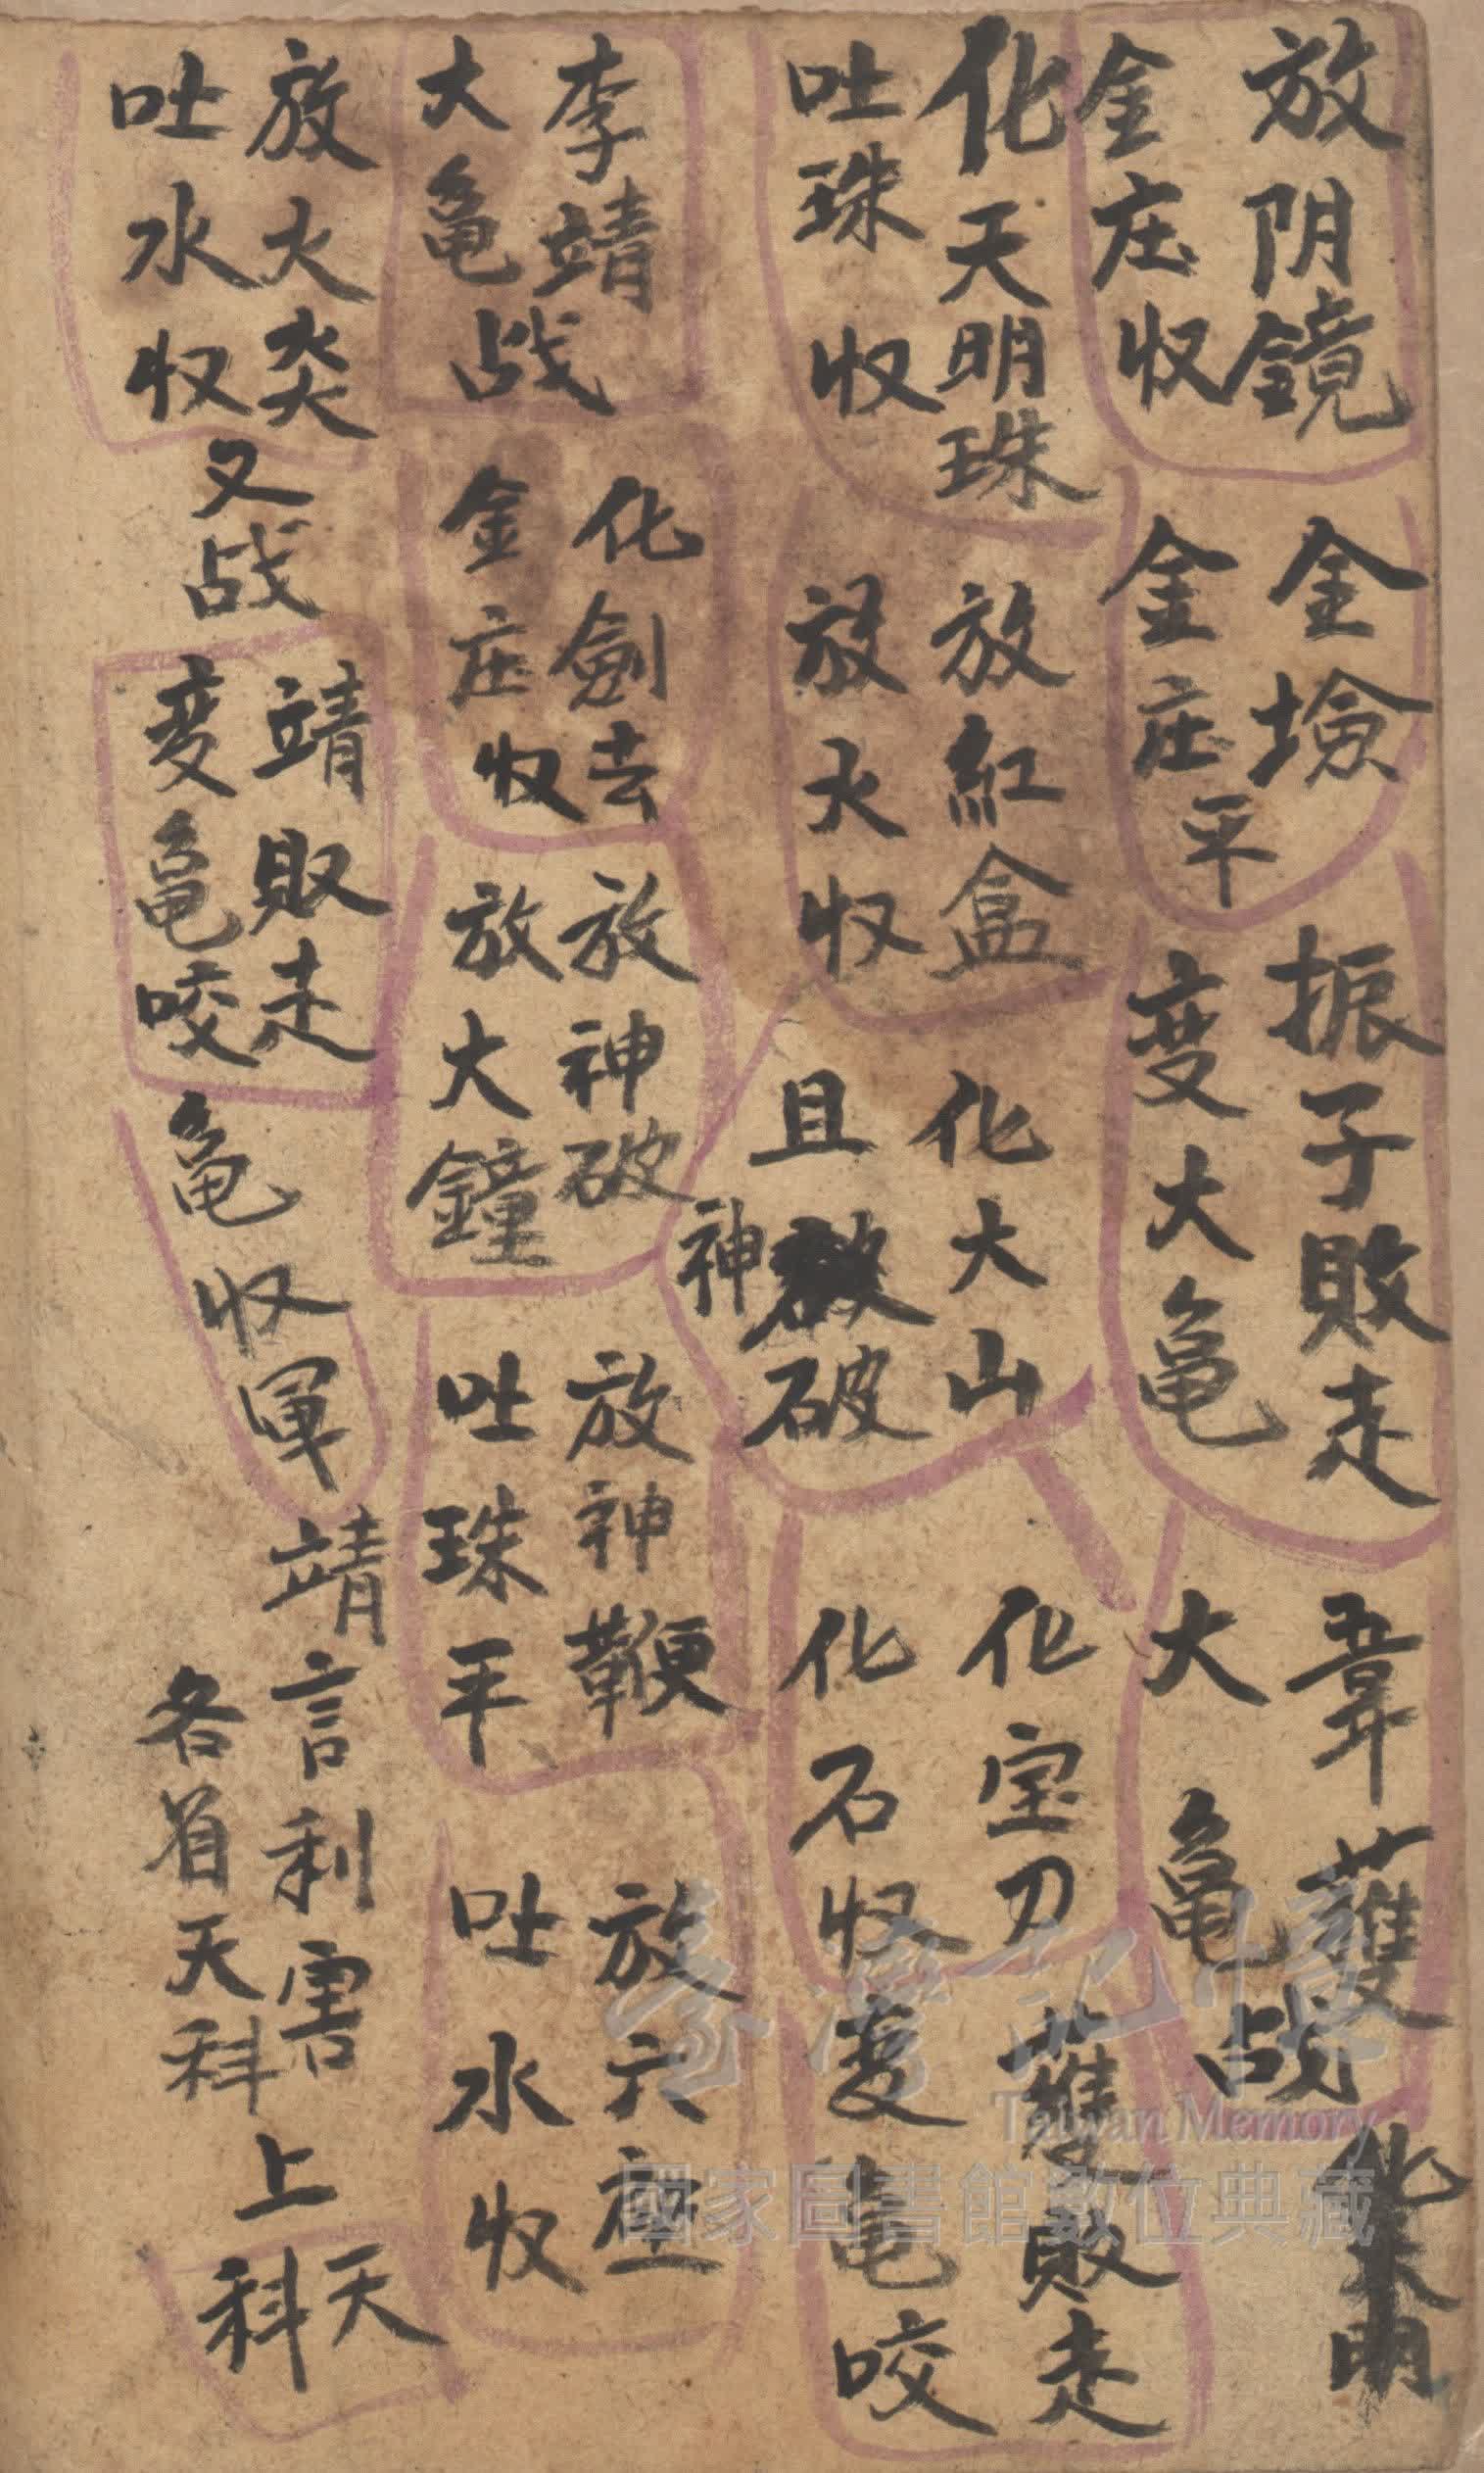 放阴鏡
金庄收
金㙩
金庄平
振子敗走
变大亀
韋護战
大亀
化天明珠
吐珠收
放紅盒
放火收
化大山
且神破
化宝刀
化石收
護敗走
变亀咬
李靖
大亀战
化劍去
金庄收
放神破
放大鐘
放神鞭
吐珠平
放六座
吐水收
放火炎
吐水收
又战
靖敗走
变亀咬
亀收軍
靖言利害
各省天科
上
天科
臺灣記憶
Taiwan Memory
國家圖書館數位典藏